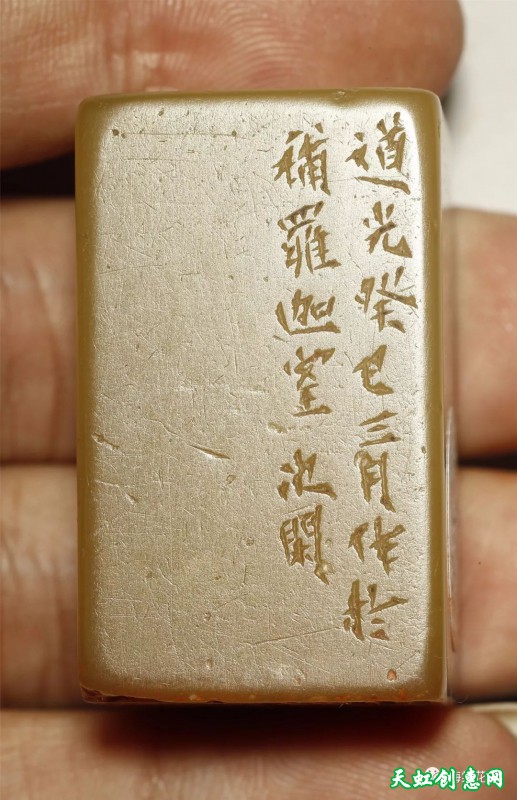 道光癸巳三月作於
補羅迦室次閑
天虹创意网